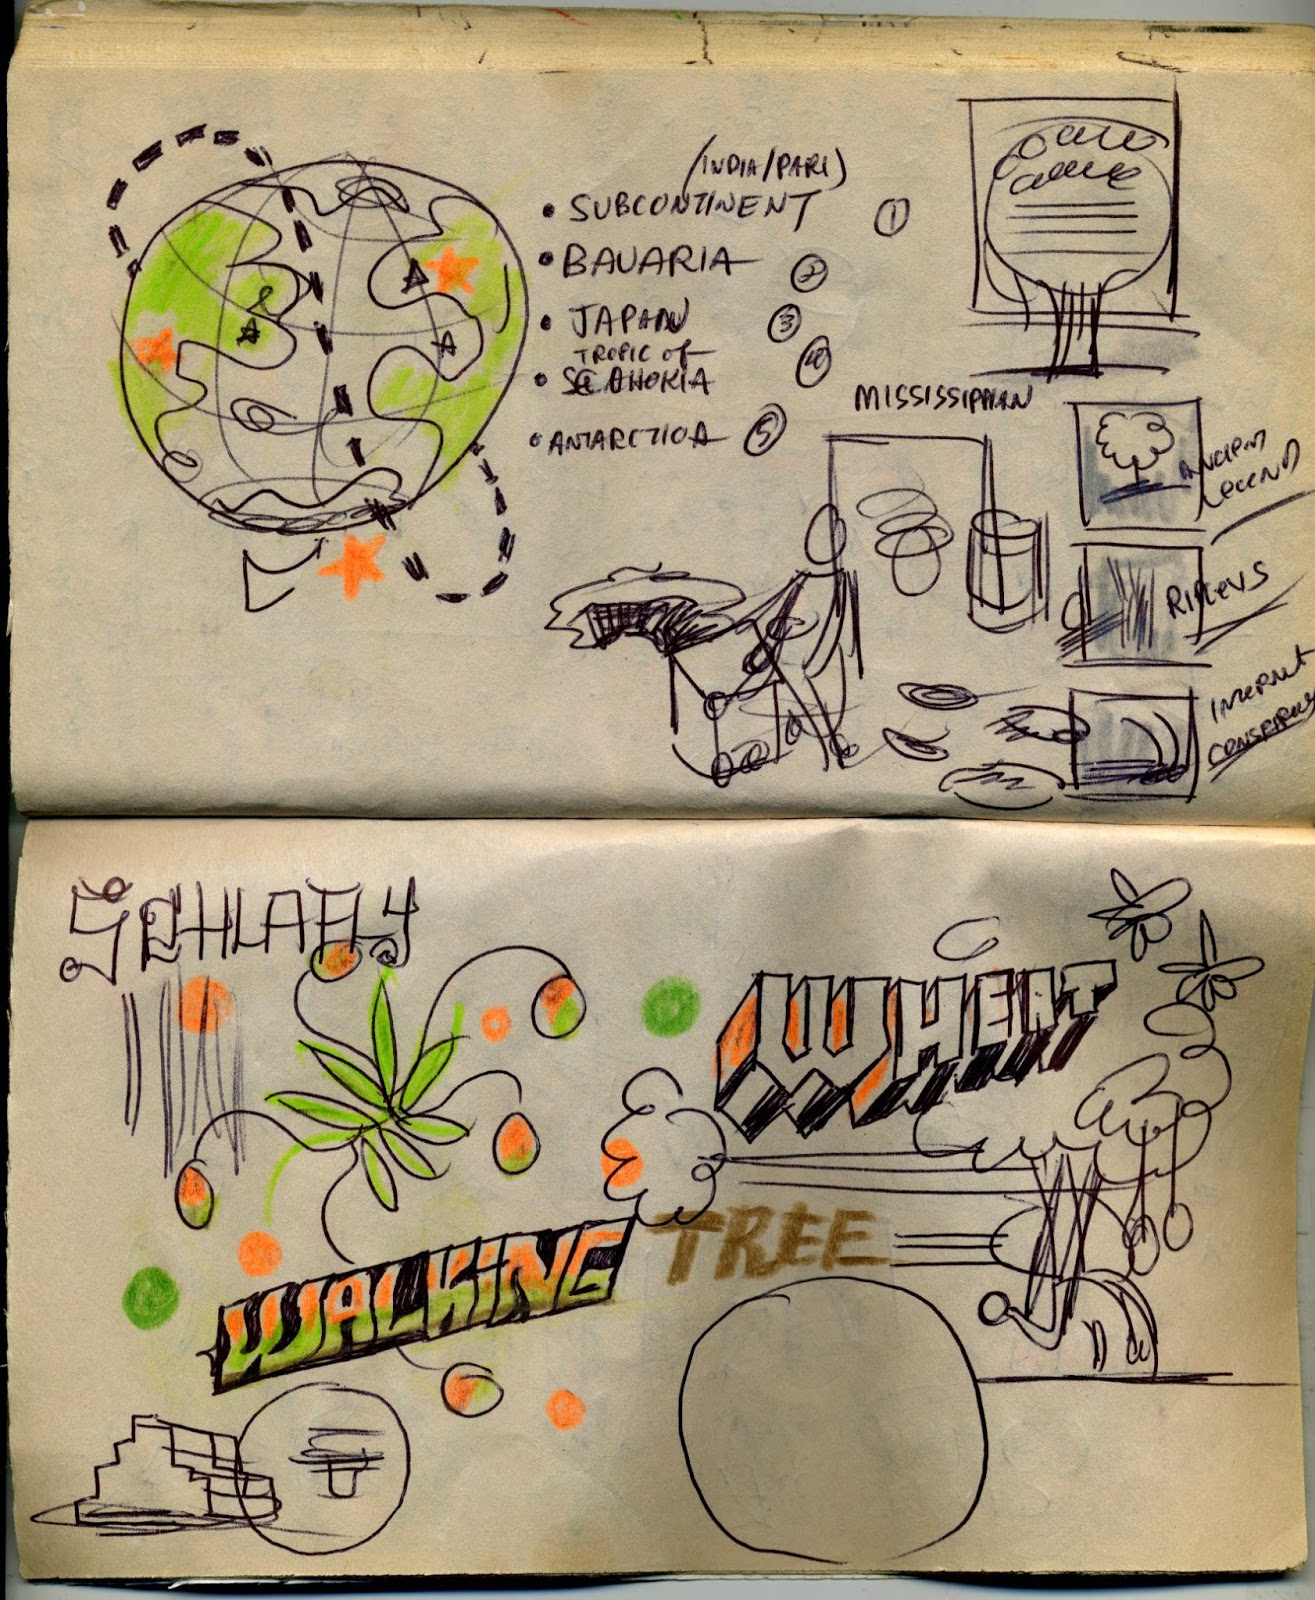 (INDIA/PARI)
• SUBCONTINENT 1
• BAVARIA 2
• JAPAN 3
TROPIC OF
• CAHOKIA 4
• ANTARCTICA 5
MISSISSIPPIAN
LEGEND
RIPLEYS
INTERNET
SCHLAFLY
WHEAT
WALKING TREE